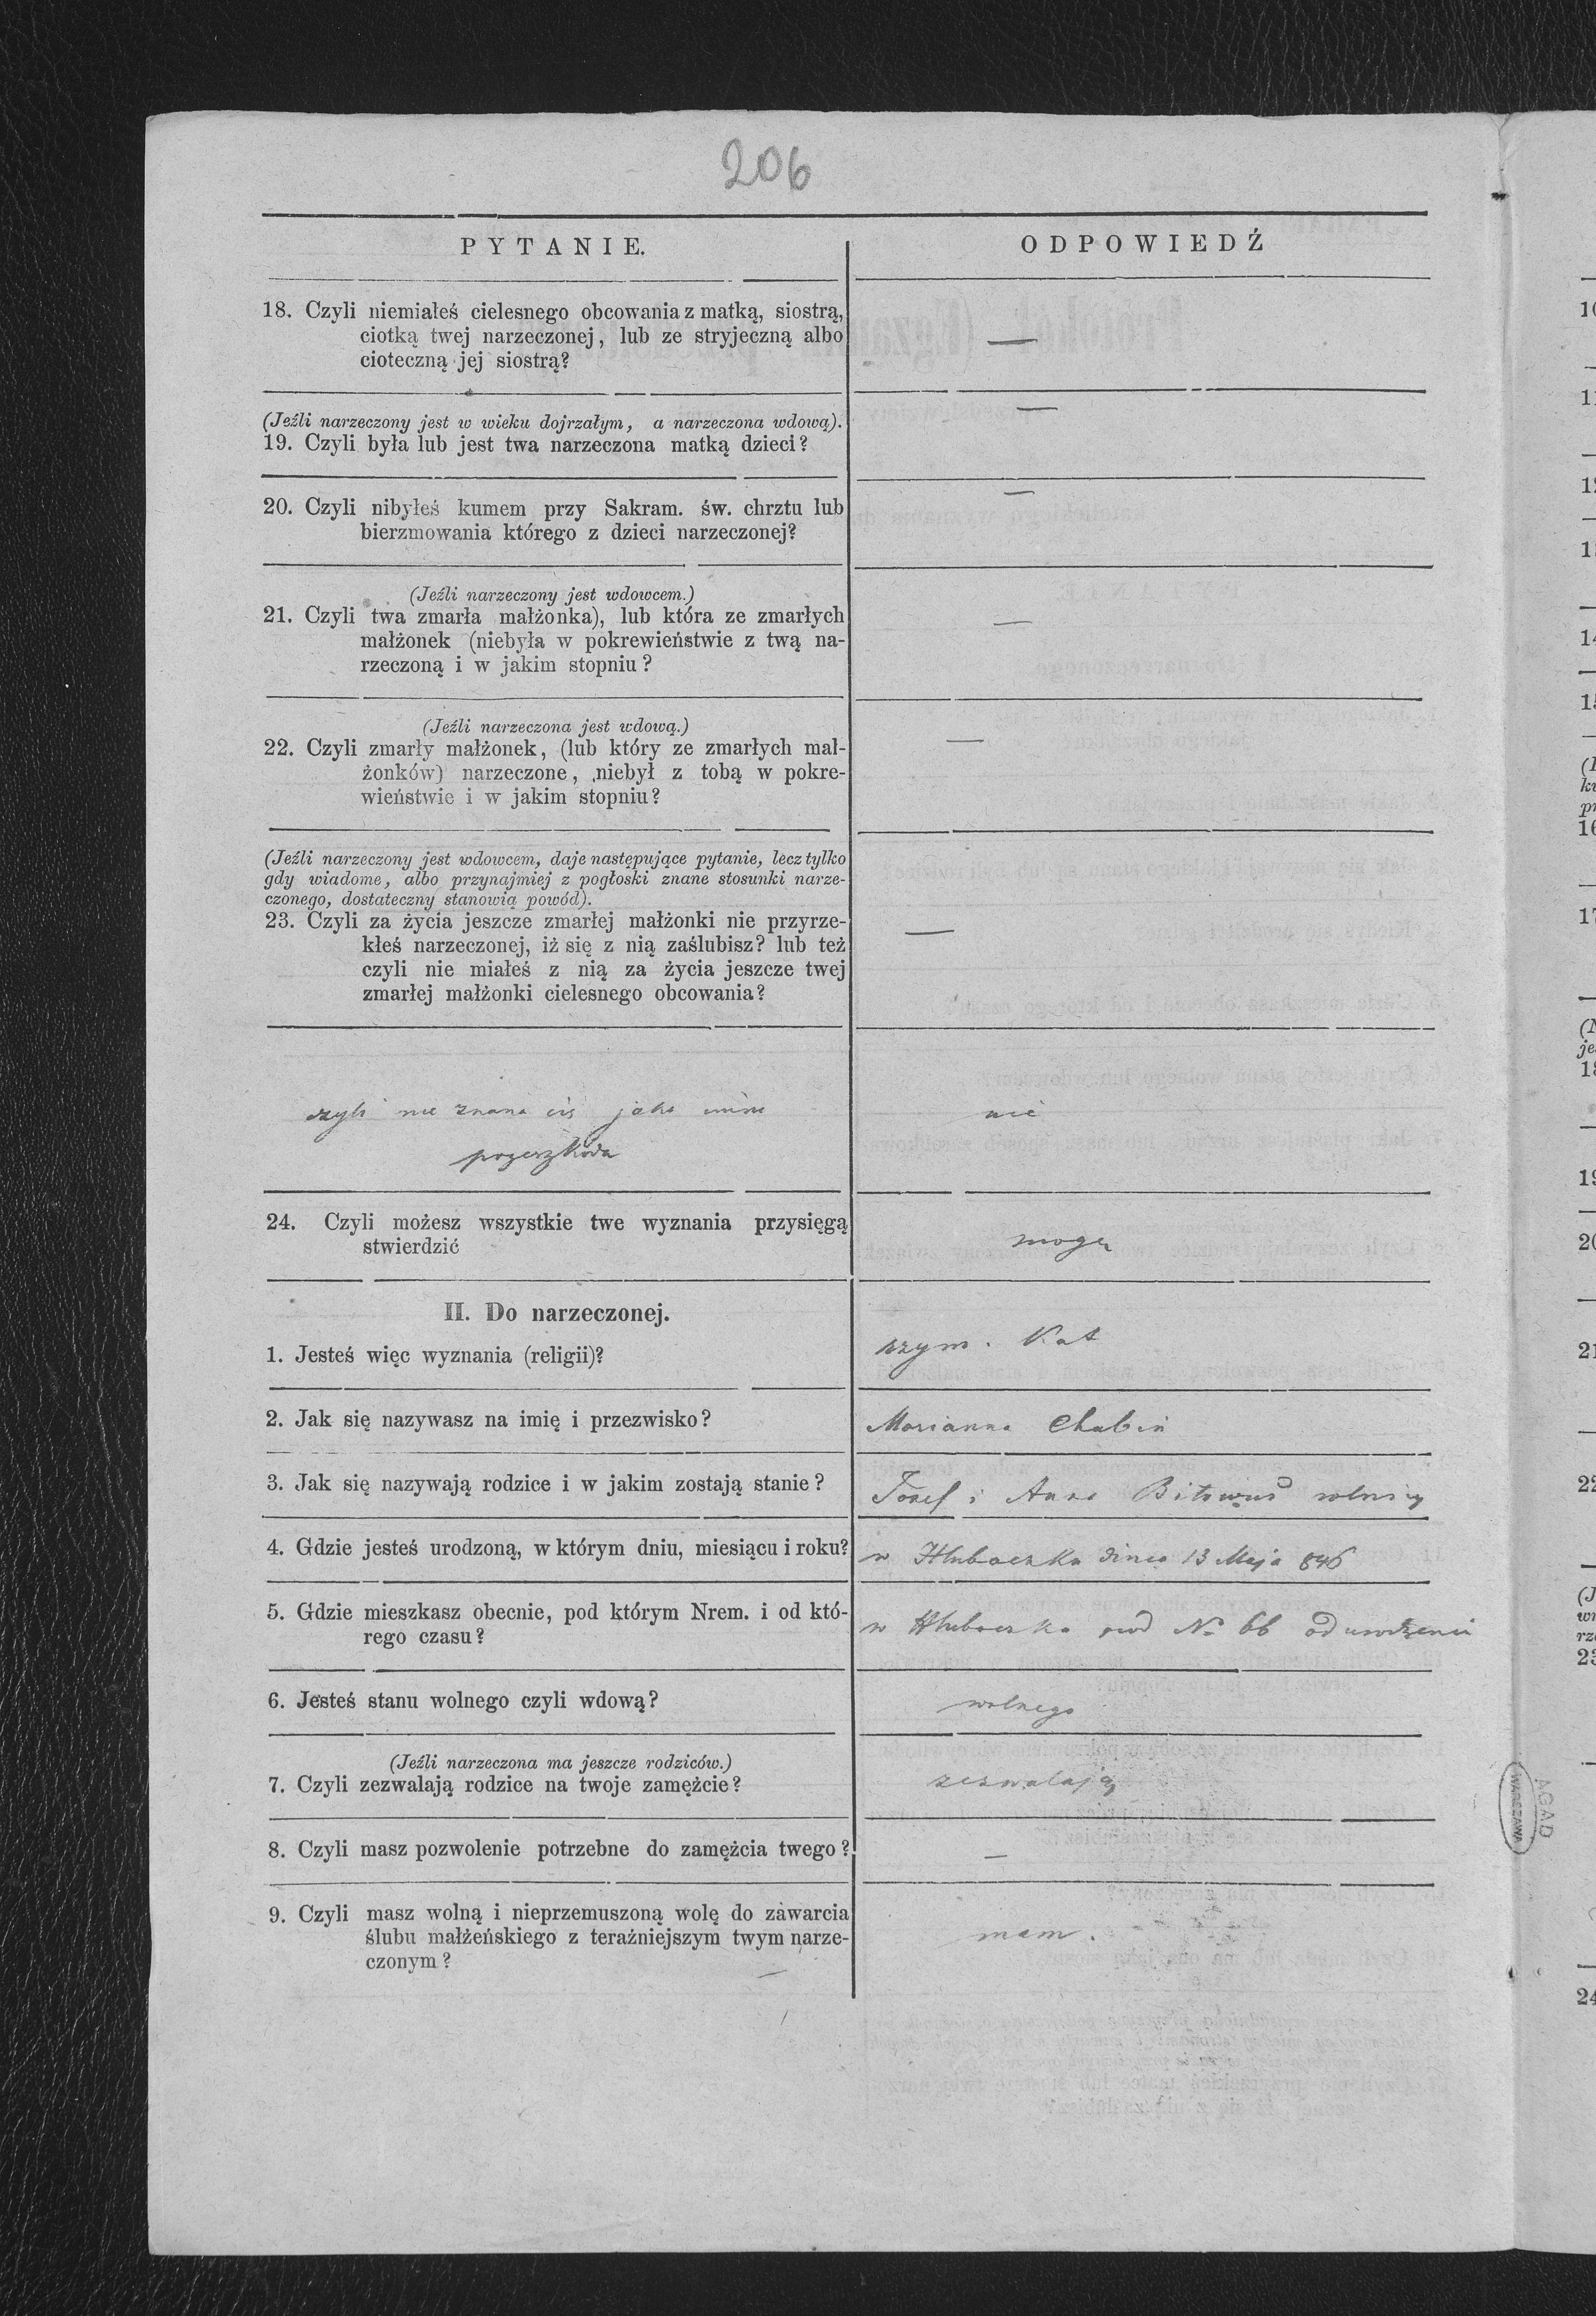 206
PYTANIE.
ODPOWIEDŹ
18. Czyli niemiałeś cielesnego obcowania z matką, siostrą,
ciotką twej narzeczonej, lub ze stryjeczną albo
cioteczną jej siostrą?
—
(Jeźli narzeczony jest w wieku dojrzałym, a narzeczona wdową).
19. Czyli była lub jest twa narzeczona matką dzieci?
—
20. Czyli nibyłeś kumem przy Sakram. św. chrztu lub
bierzmowania którego z dzieci narzeczonej?
—
(Jeźli narzeczony jest wdowcem.)
21. Czyli twa zmarła małżonka), lub która ze zmarłych
małżonek (niebyła w pokrewieństwie z twą na-
rzeczoną i w jakim stopniu?
—
(Jeźli narzeczona jest wdową.)
22. Czyli zmarły małżonek, (lub który ze zmarłych mał-
żonków) narzeczone, niebył z tobą w pokre-
wieństwie i w jakim stopniu?
—
(Jeźli narzeczony jest wdowcem, daje następujące pytanie, lecz tylko
gdy wiadome, albo przynajmiej z pogłoski znane stosunki narze-
czonego, dostateczny stanowią powód).
23. Czyli za życia jeszcze zmarłej małżonki nie przyrze-
kłeś narzeczonej, iż się z nią zaślubisz? lub też
czyli nie miałeś z nią za życia jeszcze twej
zmarłej małżonki cielesnego obcowania?
—
czyli nie znana cię jaka inna
przeszkoda
nie
24. Czyli możesz wszystkie twe wyznania przysięgą
stwierdzić
mogę
II. Do narzeczonej.
1. Jesteś więc wyznania (religii)?
rzym. Kat
2. Jak się nazywasz na imię i przezwisko?
Marianna
3. Jak się nazywają rodzice i w jakim zostają stanie?
Józef i Anna rolnicy
4. Gdzie jesteś urodzoną, w którym dniu, miesiącu i roku?
w Hluboczku dnia 13 Maja 846
5. Gdzie mieszkasz obecnie, pod którym Nrem. i od któ-
rego czasu?
w Hluboczku pod N. 66 od urodzenia
6. Jesteś stanu wolnego czyli wdową?
wolnego
(Jeźli narzeczona ma jeszcze rodziców.)
7. Czyli zezwalają rodzice na twoje zamężcie?
zezwalają
8. Czyli masz pozwolenie potrzebne do zamężcia twego?
—
9. Czyli masz wolną i nieprzemuszoną wolę do zawarcia
ślubu małżeńskiego z teraźniejszym twym narze-
czonym?
mam.
AGAD
WARSZAWA